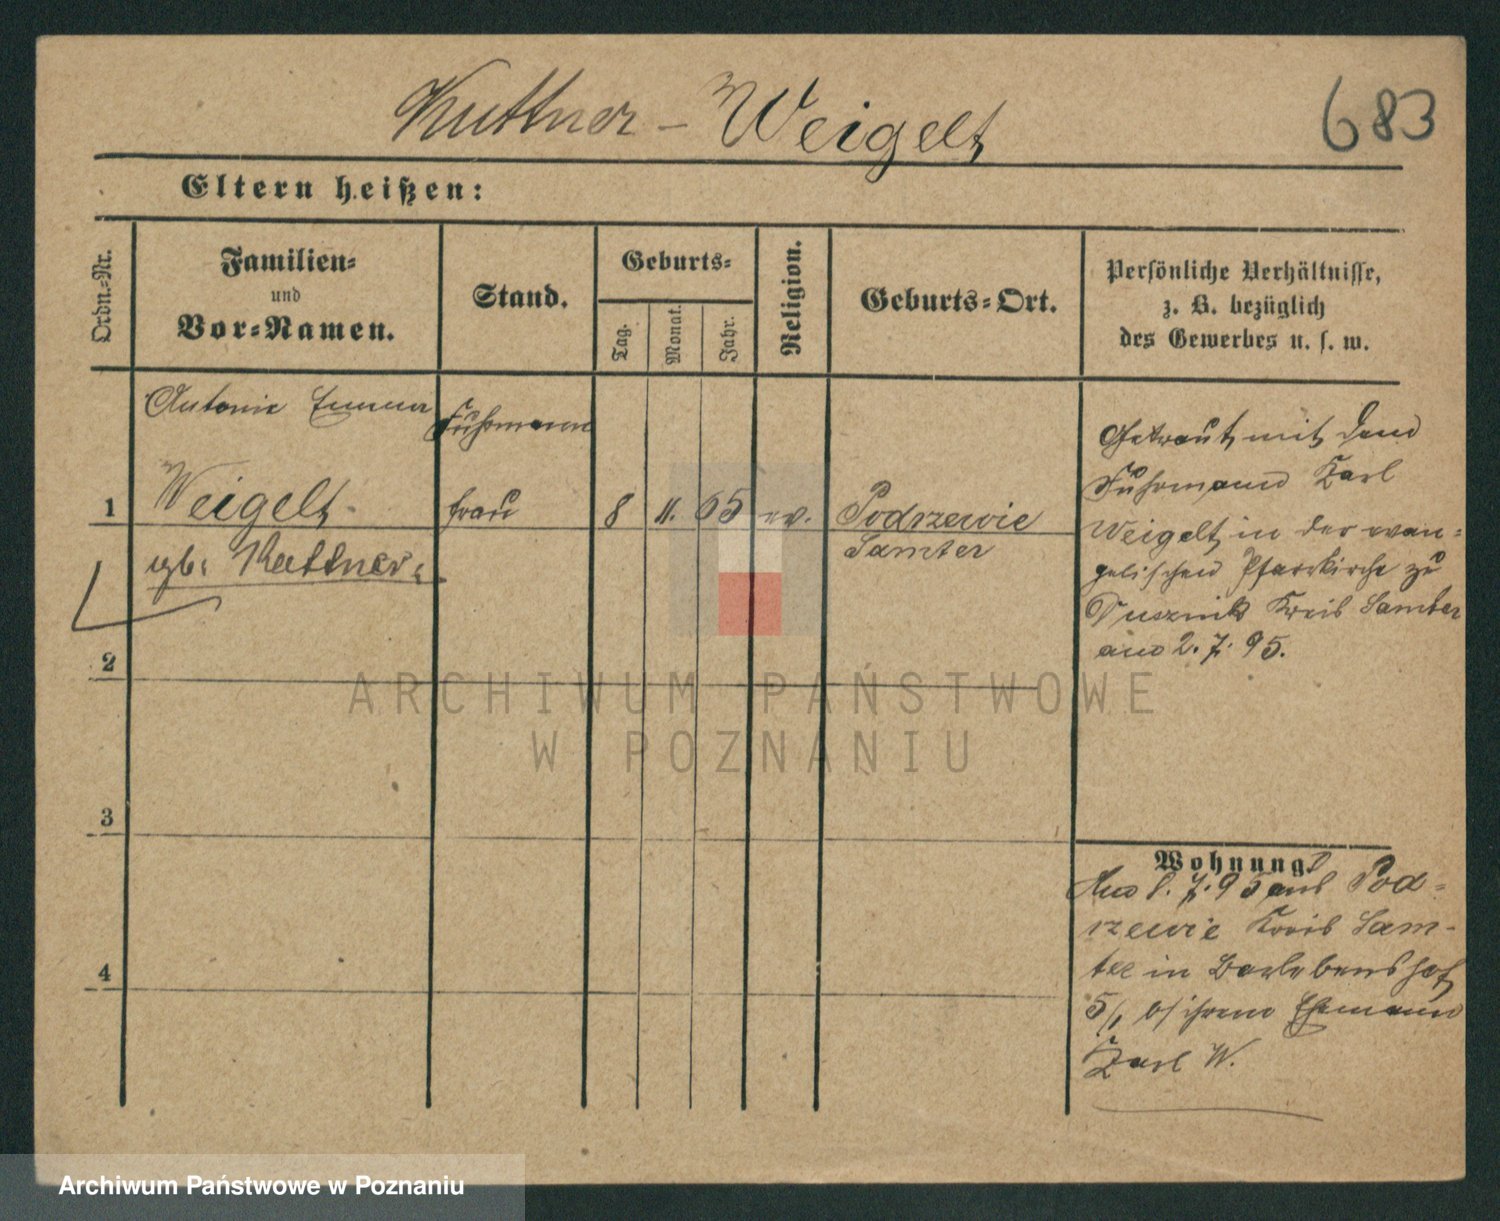 Kuttner - Weigelt
683
Eltern heißen:
Ordn.-Nr.
Familien-
und
Vor-Namen.
Stand.
Geburts-
Tag.
Monat.
Jahr.
Religion.
Geburts-Ort.
Persönliche Verhältnisse,
z. B. bezüglich
des Gewerbes u. s. w.
Antonie Emma
Weigelt
geb. Kuttner.
Fuhrmann
frau
1
8
11.
65
ev.
Podrzewie
Samter
Getraut mit dem
Fuhrmann Karl
Weigelt in der evan-
gelischen Pfarrkirche zu
Dusznik Kreis Samter
am 2. 7. 95.
2
3
4
Wohnung
Am 8. 7. 95 aus Pod-
rzewie Kreis Sam-
ter in
5/, b/ ihrem Ehemann
Karl W.
ARCHIWUM PAŃSTWOWE
W POZNANIU
Archiwum Państwowe w Poznaniu